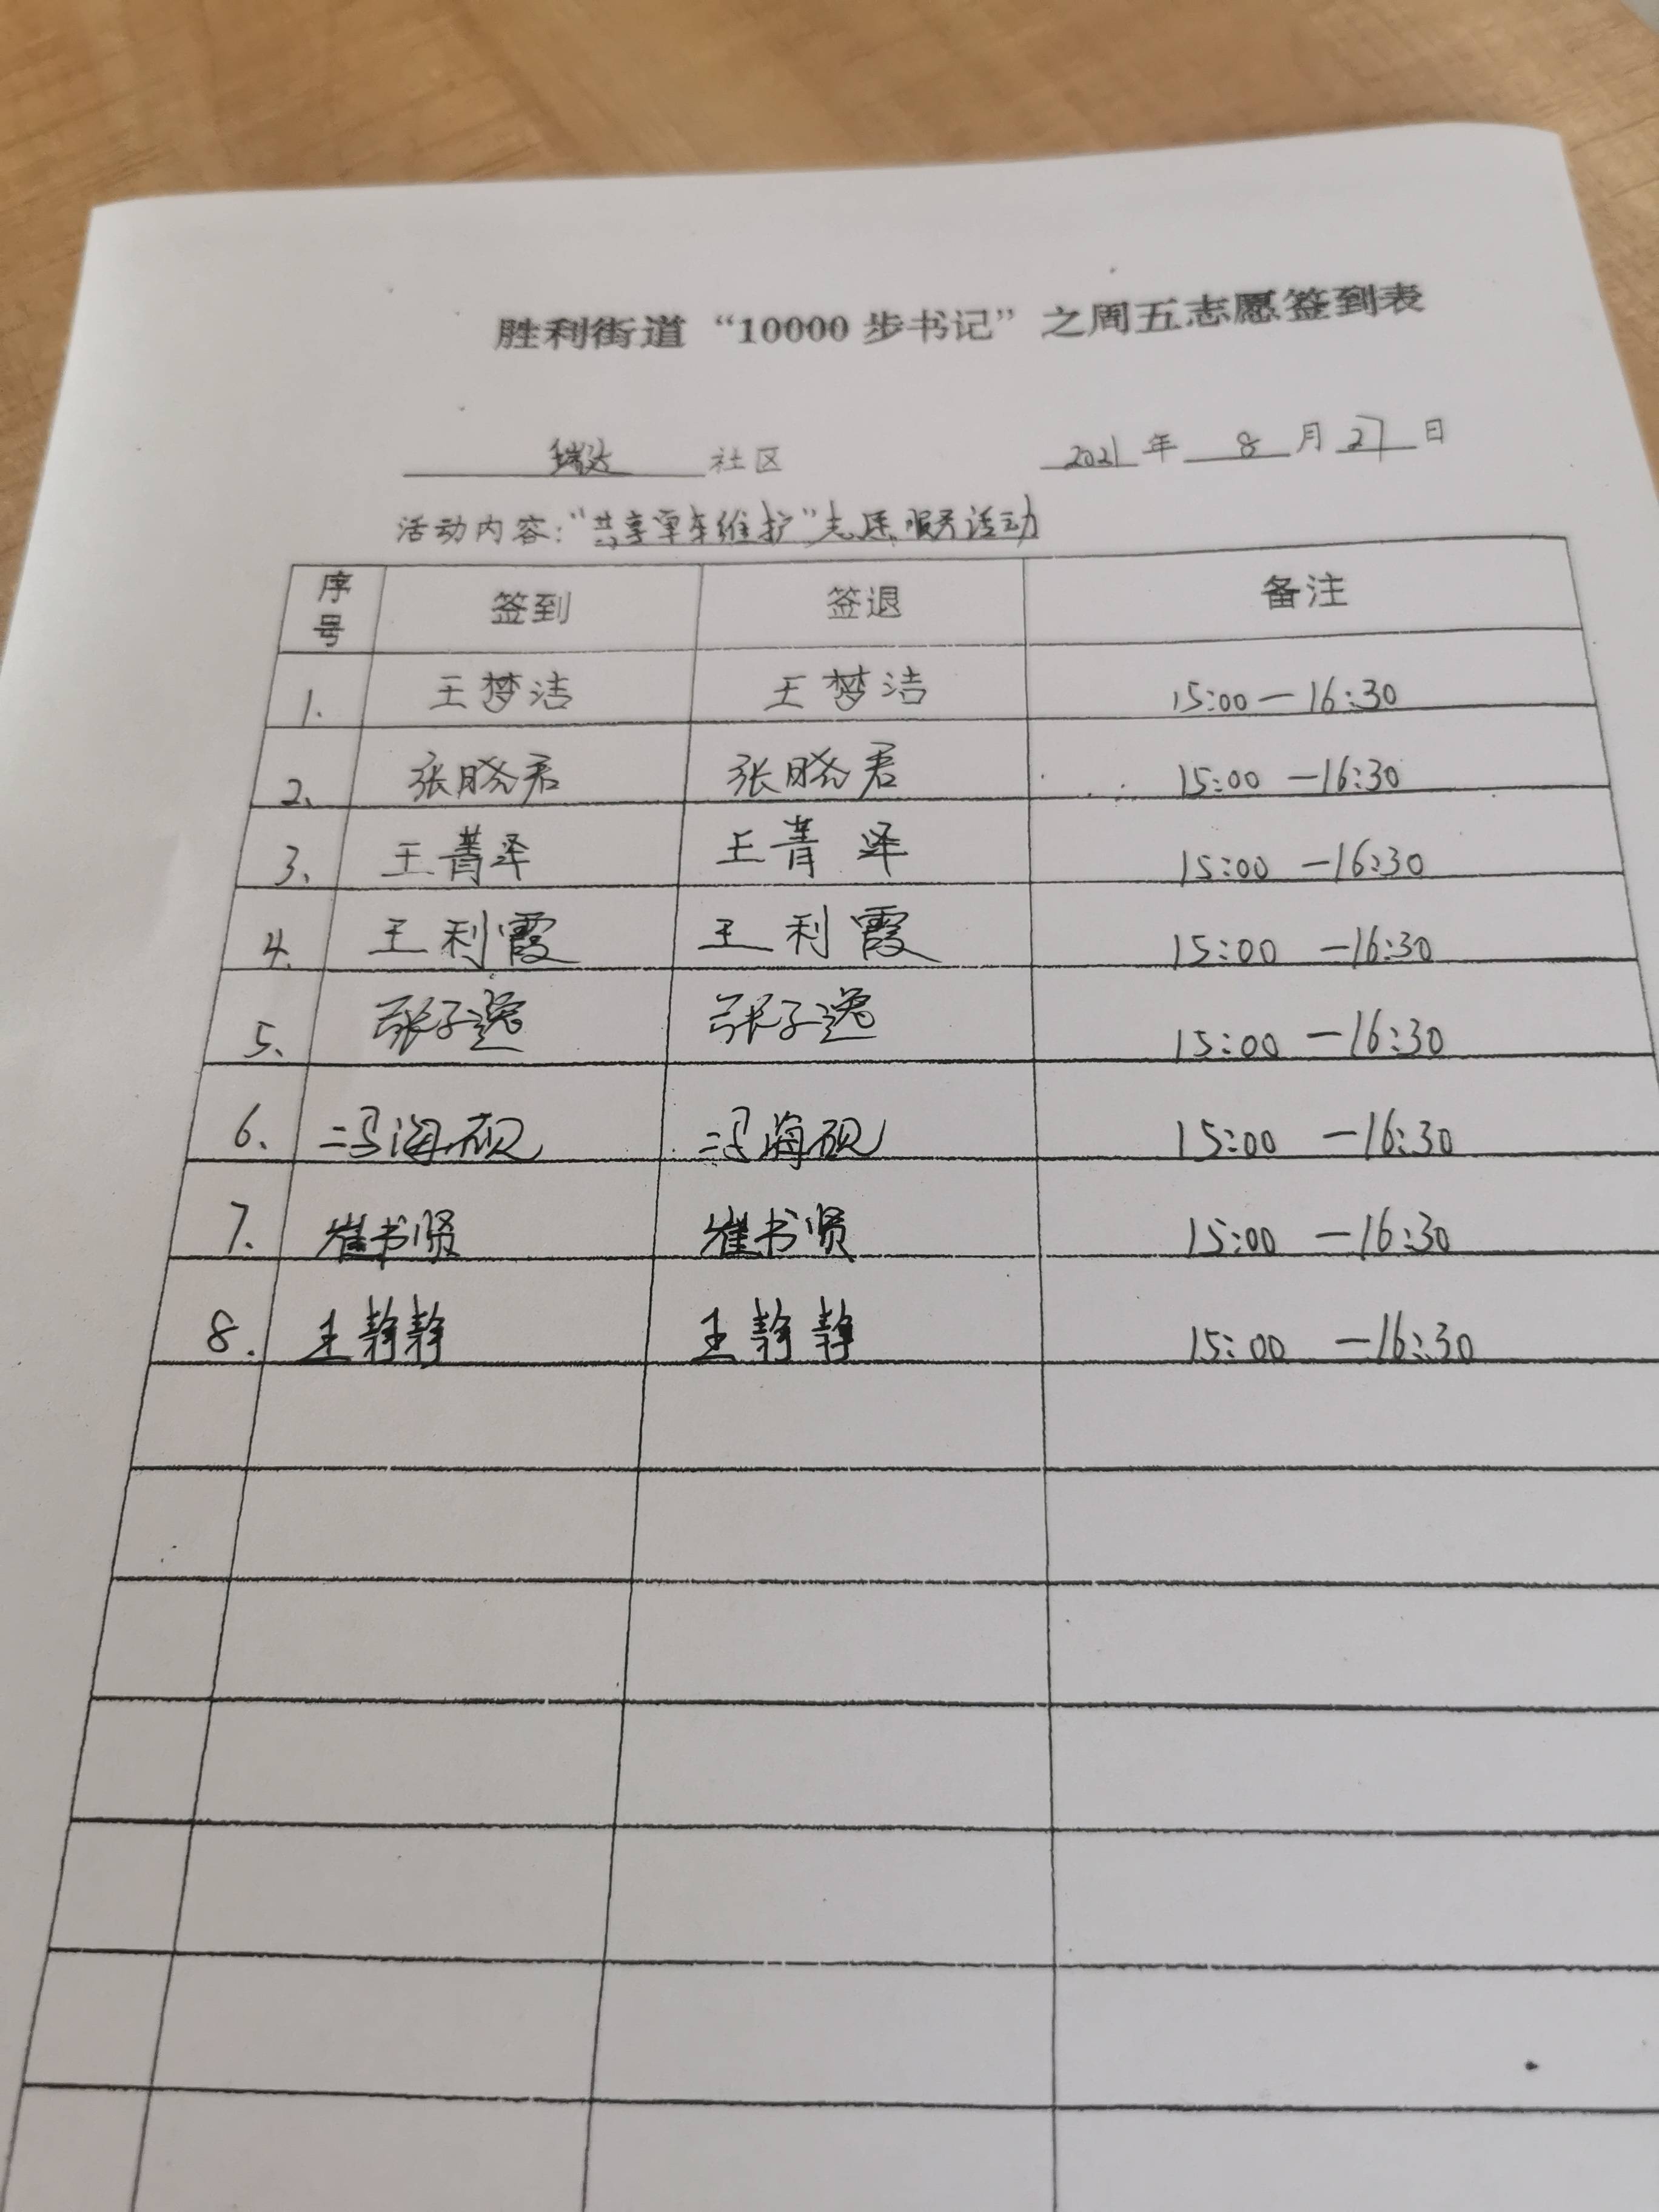 胜利街道“10000步书记”之周五志愿签到表
瑞达 社区 2021 年 8 月 27 日
活动内容：“共享单车维护”志愿服务活动
序号 签到 签退 备注
1. 王梦洁 王梦洁 15:00—16:30
2、 张晓君 张晓君 15:00 —16:30
3、 王菁 王菁 15:00 —16:30
4. 王利霞 王利霞 15:00 —16:30
5、 张子逸 张子逸 15:00 —16:30
6、 冯海砚 冯海砚 15:00 —16:30
7. 崔书贤 崔书贤 15:00 —16:30
8. 王静静 王静静 15:00 —16:30